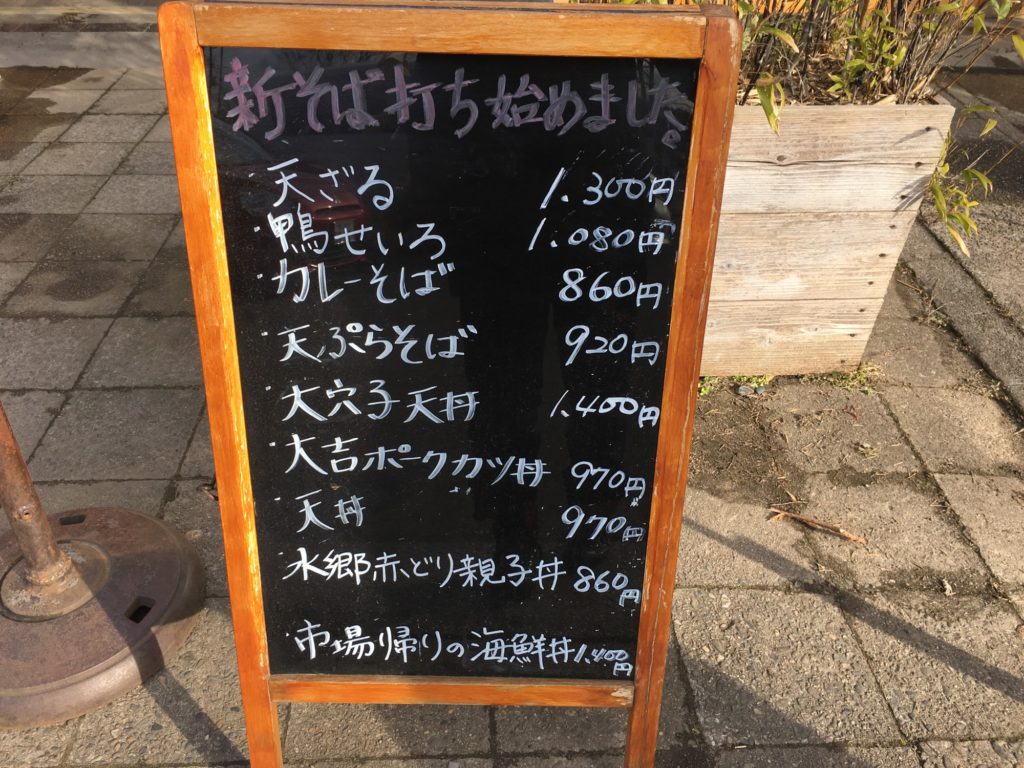 新そば打ち始めました。
・天ざる 1.300円
・鴨せいろ 1.080円
・カレーそば 860円
・天ぷらそば 920円
・大穴子天丼 1.400円
・大吉ポークカツ丼 970円
・天丼 970円
・水郷赤どり親子丼 860円
・市場帰りの海鮮丼 1.400円